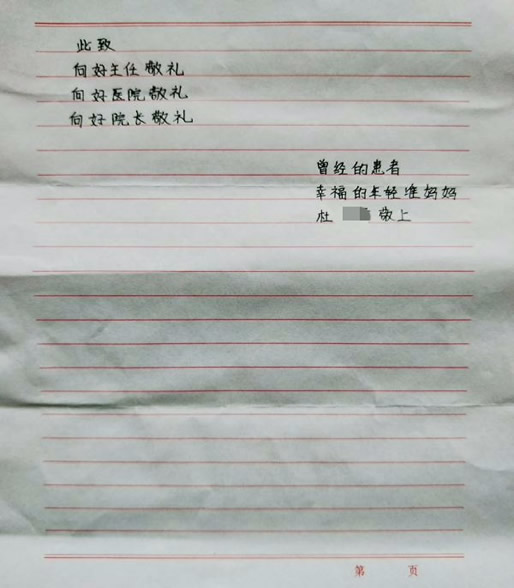 此致
向好主任敬礼
向好医院敬礼
向好院长敬礼
曾经的患者
幸福的年轻准妈妈
杜 敬上
第 页